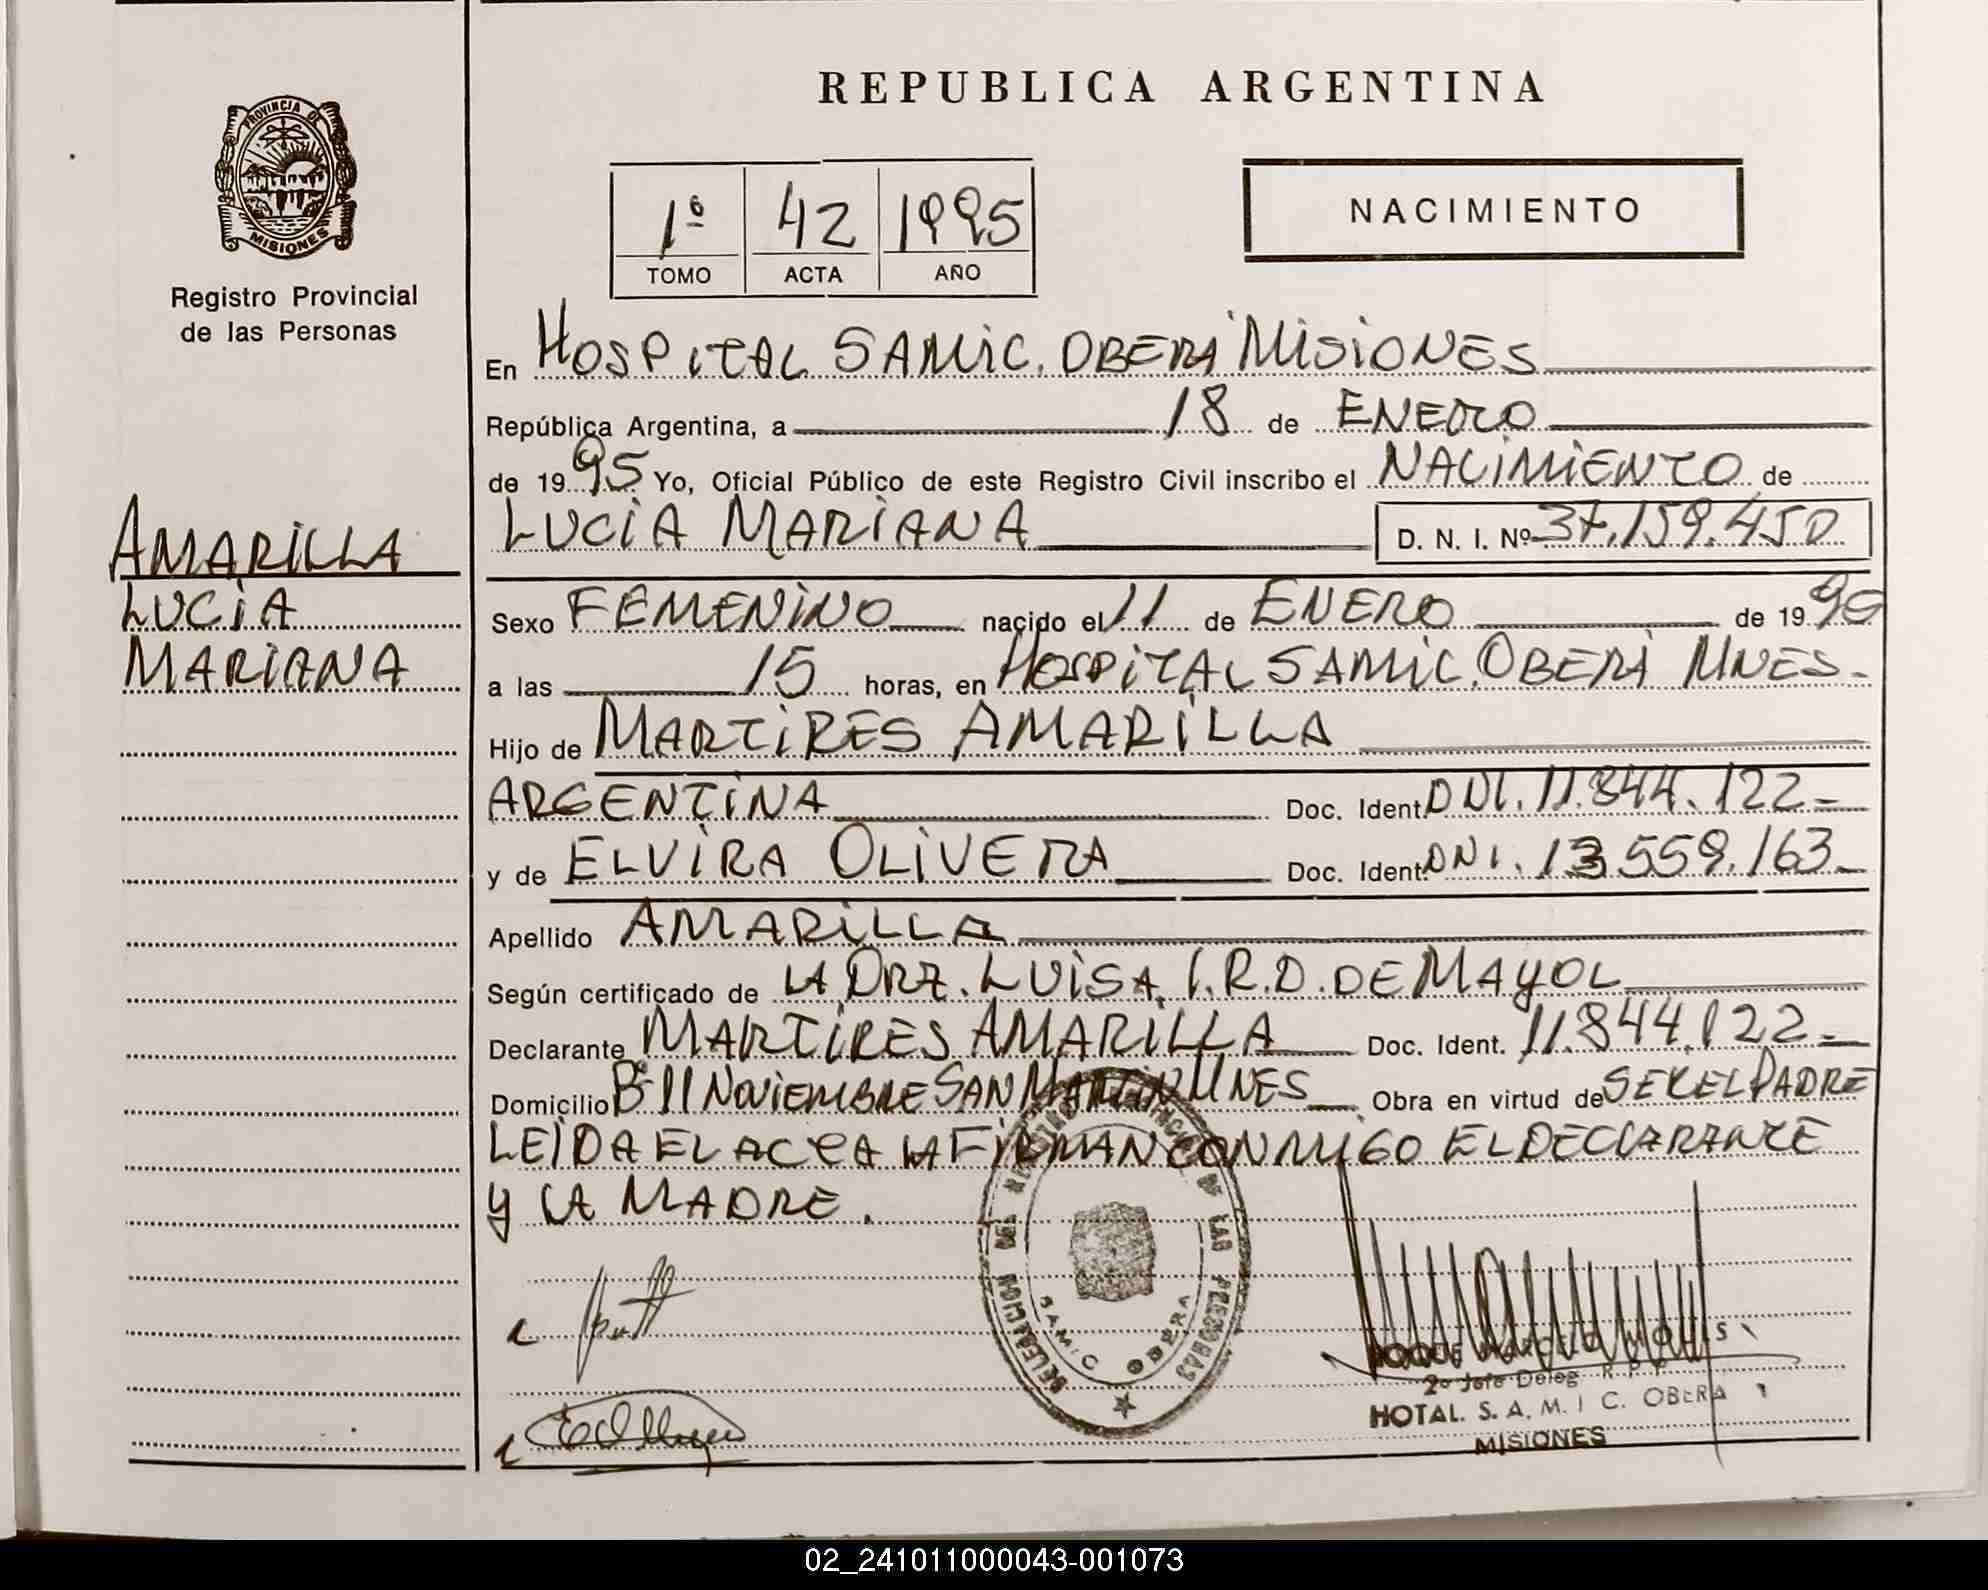 REPUBLICA ARGENTINA
PROVINCIA DE
MISIONES
Registro Provincial
de las Personas
1º 42 1995
TOMO ACTA AÑO
NACIMIENTO
En HOSPITAL SAMIC. OBERA MISIONES
República Argentina, a 18 de ENERO
de 1995 Yo, Oficial Público de este Registro Civil inscribo el NACIMIENTO de
LUCIA MARIANA D. N. I. Nº 37.159.450
AMARILLA
LUCIA
MARIANA
Sexo FEMENINO nacido el 11 de ENERO de 19
a las 15 horas, en HOSPITAL SAMIC. OBERA MNES-
Hijo de MARTIRES AMARILLA
ARGENTINA Doc. Ident. DNI. 11.844.122-
y de ELVIRA OLIVERA Doc. Ident. DNI. 13559.163-
Apellido AMARILLA
Según certificado de LA DRA. LUISA. I.R.D. DE MAYOL
Declarante MARTIRES AMARILLA Doc. Ident. 11.844.122-
Domicilio Bº 11 NOVIEMBRE SAN MARTIN MNES Obra en virtud de SER EL PADRE
LEIDA EL ACTA LA FIRMAN CONMIGO EL DECLARANTE
Y LA MADRE.
DELEGACION DEL REGISTRO PROVINCIAL DE LAS PERSONAS
SAMIC OBERA
ROQUE
2º Jefe Deleg. R P P
HOTAL. S. A. M. I C. OBERA
MISIONES
02_241011000043-001073